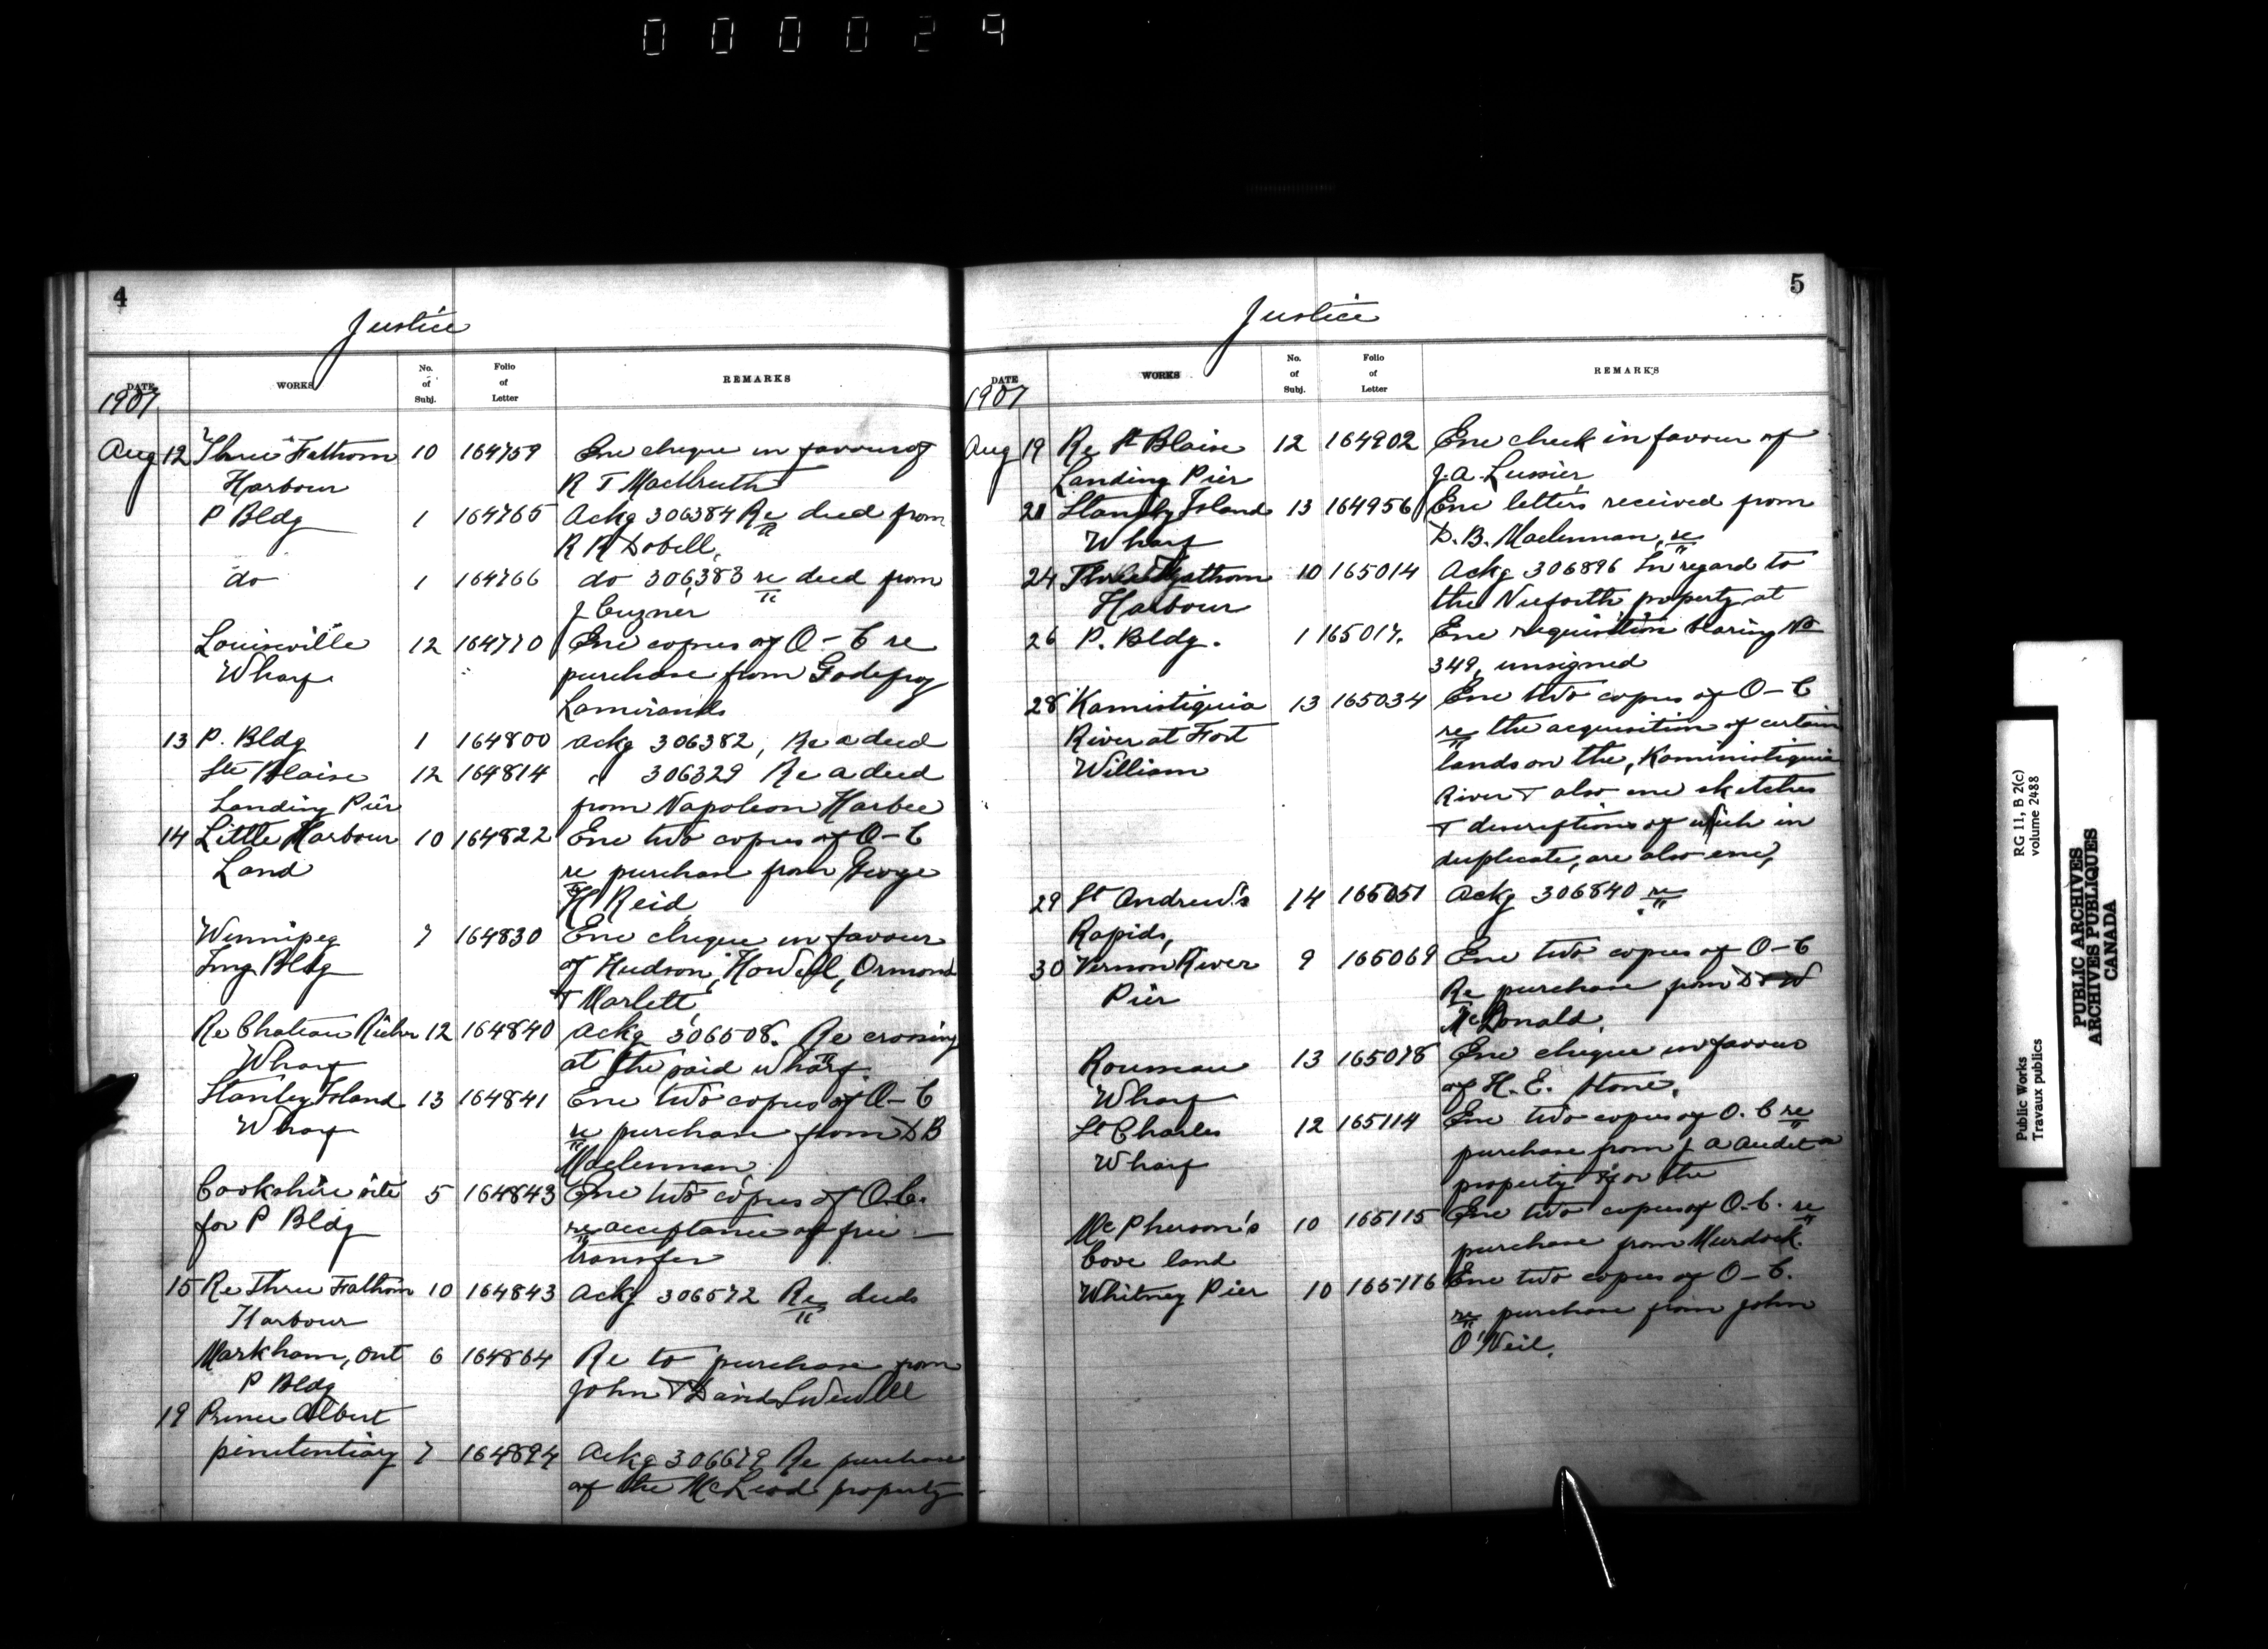 000029
4
Justice
DATE WORKS No. of Subj. Folio of Letter REMARKS
1907
Aug 12 Three Fathom 10 164759 Enc cheque in favour of
Harbour R T MacIlreith
P Bldg 1 164765 Ackg 306384 Re deed from
R R Dobell,
do 1 164766 do 306383 re deed from
J Cuzner
Louiseville 12 164770 Enc copies of O-C re
Wharf purchase from Godefroy
Lamirande
13 P. Bldg 1 164800 Ackg 306382, Re a deed
Ste Blaise 12 164814 " 306329 Re a deed
Landing Pier from Napoleon Harbec
14 Little Harbour 10 164822 Enc two copies of O-C
Land re purchase from George
H Reid
Winnipeg 7 164830 Enc cheque in favour
Img Bldg of Hudson, Howell, Ormond
& Marlett,
Re Chateau Richer 12 164840 Ackg 306508. Re crossing
Wharf at the said wharf
Stanley Island 13 164841 Enc two copies of O-C
Wharf re purchase from D B
Maclennan
Cookshire site 5 164843 Enc two copies of O.C.
for P Bldg re acceptance of free
transfer
15 Re Three Fathom 10 164843 Ackg 306572 Re deeds
Harbour
Markham, Ont 6 164864 Re to purchase from
P Bldg John & David
19 Prince Albert
penitentiary 7 164894 Ackg 306679 Re purchase
of the McLeod property
5
Justice
DATE WORKS No. of Subj. Folio of Letter REMARKS
1907
Aug 19 Re St Blaise 12 164902 Enc check in favour of
Landing Pier J.A. Lussier,
21 Stanley Island 13 164956 Enc letters received from
Wharf D.B. Maclennan, re
24 Three Fathom 10 165014 Ackg 306896 In regard to
Harbour the Nieforth property at
26 P. Bldg. 1 165017. Enc requisition bearing No
349, unsigned
28 Kamistiquia 13 165034 Enc two copies of O-C
River at Fort re the acquisition of certain
William lands on the, Kaministiquia
River & also enc sketches
& descriptions of which in
duplicate, are also enc,
29 St Andrew's 14 165051 Ackg 306840 re
Rapids,
30 Vernon River 9 165069 Enc two copies of O-C
Pier Re purchase from D & W
McDonald.
Rousseau 13 165078 Enc cheque in favour
Wharf of H. E. Stone.
St Charles 12 165114 Enc two copies of O. C re
Wharf purchase from J A Audet a
property for the
McPherson's 10 165115 Enc two copies of O-C. re
Cove land purchase from Murdock.
Whitney Pier 10 165116 Enc two copies of O-C.
re purchase from John
O'Neil.
Public Works
Travaux publics
RG 11, B 2(c)
volume 2488
PUBLIC ARCHIVES
ARCHIVES PUBLIQUES
CANADA